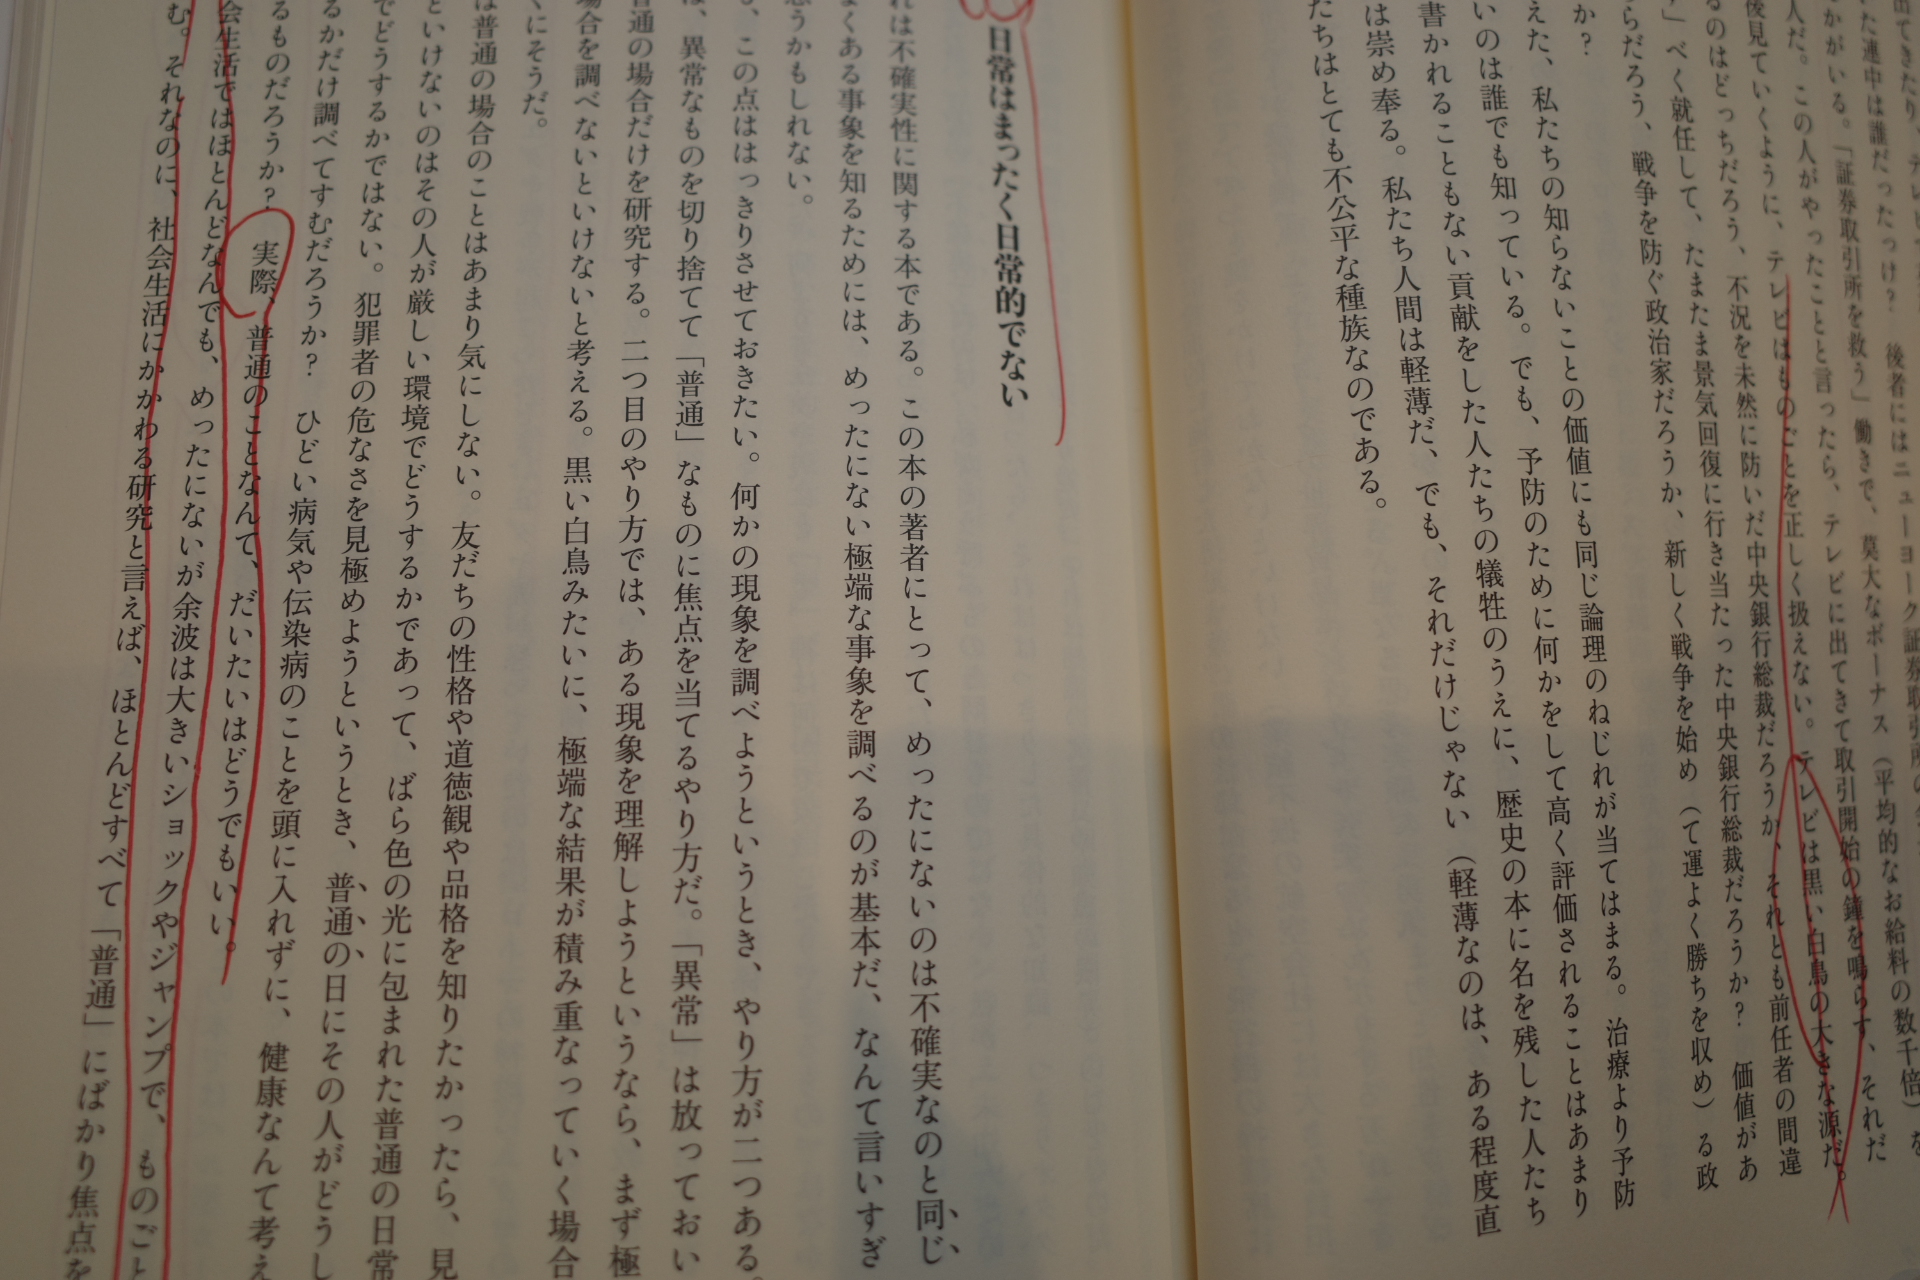 出てきたり、テレビ
た連中は誰だったっけ？　後者にはニューヨーク証券取引所の
かがいる。「証券取引所を救う」働きで、莫大なボーナス（平均的なお給料の数千倍）を
人だ。この人がやったことと言ったら、テレビに出てきて取引開始の鐘を鳴らす、それだ
後見ていくように、テレビはものごとを正しく扱えない。テレビは黒い白鳥の大きな源だ。
るのはどっちだろう、不況を未然に防いだ中央銀行総裁だろうか、それとも前任者の間違
」べく就任して、たまたま景気回復に行き当たった中央銀行総裁だろうか？　価値があ
らだろう、戦争を防ぐ政治家だろうか、新しく戦争を始め（て運よく勝ちを収め）る政
か？
えた、私たちの知らないことの価値にも同じ論理のねじれが当てはまる。治療より予防
いのは誰でも知っている。でも、予防のために何かをして高く評価されることはあまり
書かれることもない貢献をした人たちの犠牲のうえに、歴史の本に名を残した人たち
は崇め奉る。私たち人間は軽薄だ、でも、それだけじゃない（軽薄なのは、ある程度直
たちはとても不公平な種族なのである。
日常はまったく日常的でない
れは不確実性に関する本である。この本の著者にとって、めったにないのは不確実なのと同じ
よくある事象を知るためには、めったにない極端な事象を調べるのが基本だ、なんて言いすぎ
思うかもしれない。
、この点ははっきりさせておきたい。何かの現象を調べようというとき、やり方が二つある。
は、異常なものを切り捨てて「普通」なものに焦点を当てるやり方だ。「異常」は放っておい
普通の場合だけを研究する。二つ目のやり方では、ある現象を理解しようというなら、まず極
場合を調べないといけないと考える。黒い白鳥みたいに、極端な結果が積み重なっていく場合
くにそうだ。
は普通の場合のことはあまり気にしない。友だちの性格や道徳観や品格を知りたかったら、見
といけないのはその人が厳しい環境でどうするかであって、ばら色の光に包まれた普通の日常
でどうするかではない。犯罪者の危なさを見極めようというとき、普通の日にその人がどうし
るかだけ調べてすむだろうか？　ひどい病気や伝染病のことを頭に入れずに、健康なんて考え
るものだろうか？　実際、普通のことなんて、だいたいはどうでもいい。
会生活ではほとんどなんでも、めったにないが余波は大きいショックやジャンプで、ものごと
む。それなのに、社会生活にかかわる研究と言えば、ほとんどすべて「普通」にばかり焦点を